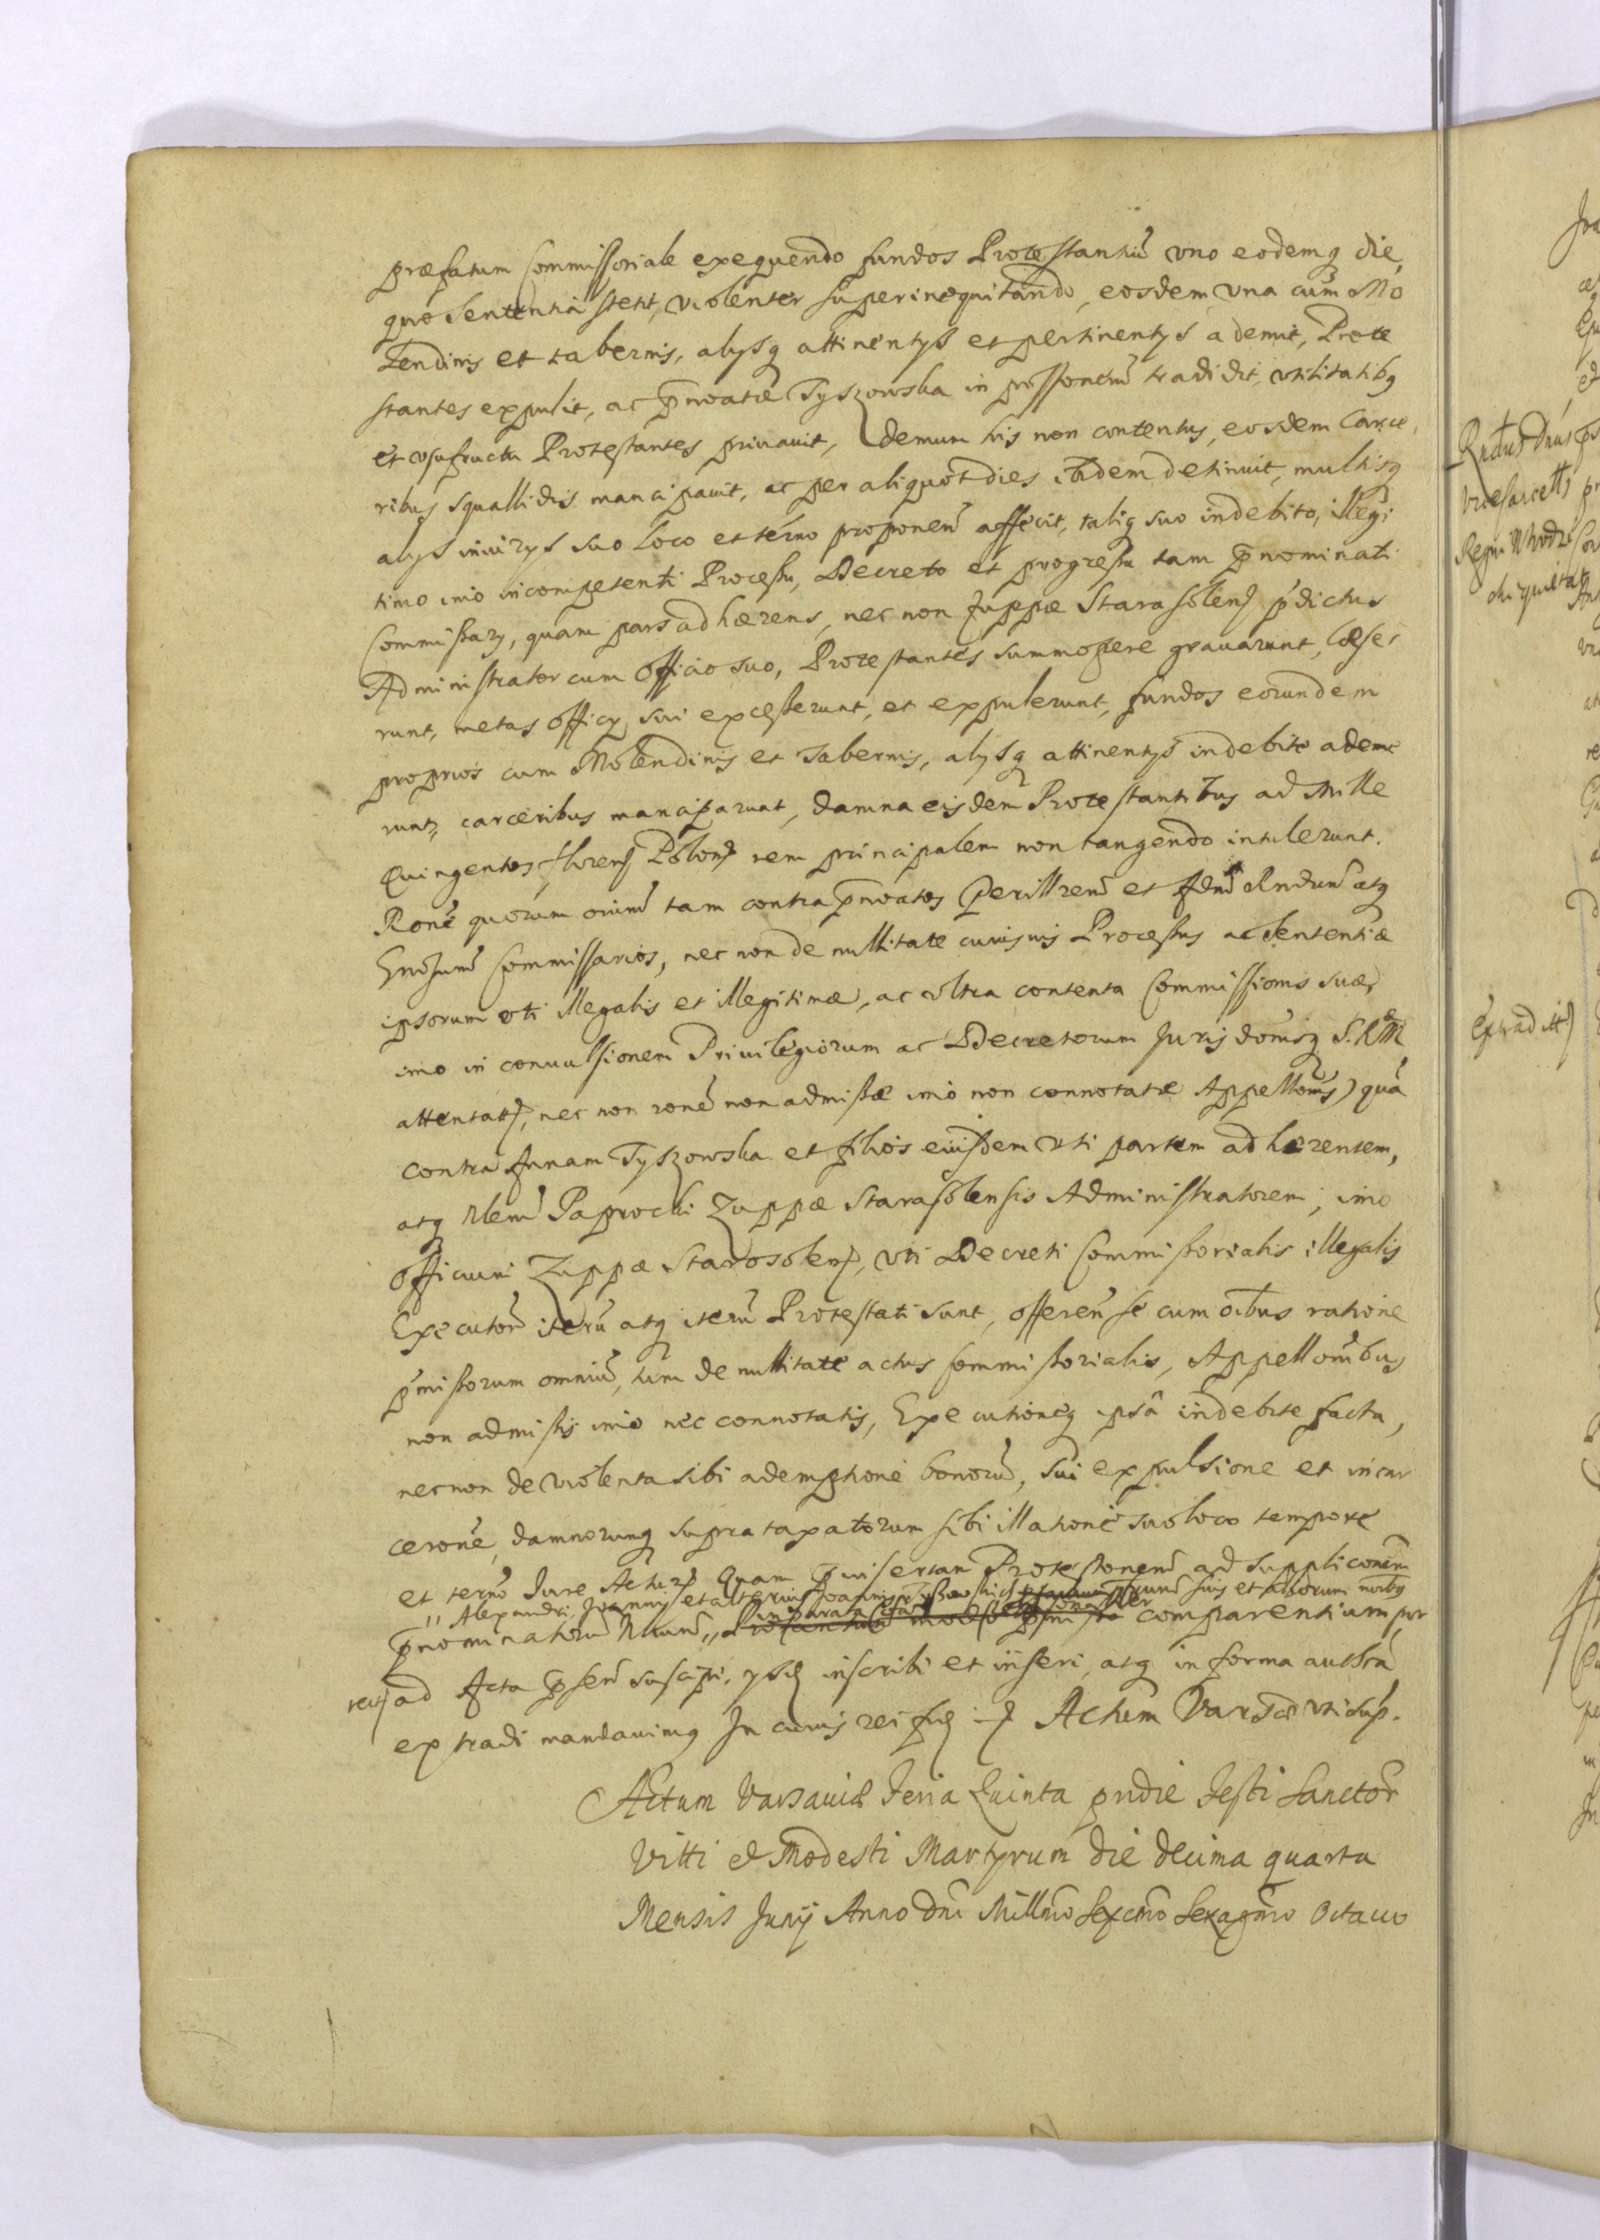 præfatum Commissoriale exequendo fundos Protestantiũ vno eodemq die,
quo Sententia stetit, violenter superinequitando, eosdem vna cum Mo
lendinis et tabernis, alysq attinentys et pertinentys ademit, Prote
stantes expulit, ac p̃noatæ Tyszowska in possõnem tradidit, vtilitatibq
et vsufructu Protestantes priuauit, demum his non contentus, eosdem Carce
ribus squallidis mancipauit, ac per aliquot dies ibidem detinuit, multisq
alys iniurys suo loco et termo proponen̄ affecit, taliq suo indebito, illegi
timo imo incompetenti Processu, Decreto et progressu tam p̃nominati
Commissary, quam pars adhærens, nec non Zuppæ Starasolen̄ p̃dictus
Administrator cum officio suo, Protestantes summopere grauarunt, læse
runt, metas officy sui excesserunt, et expulerunt, fundos eorundem
proprios cum Molendinis et Tabernis, alysq attinentys indebite ademe
runt, carceribus manciparunt, damna eisdem Protestantibus ad Mille
Quingentos floren̄ Polon̄ rem principalem non tangendo intulerunt.
Rone quorum oium̄ tam contra p̃noatos Perillrem̄ et Adm̄ Rndum̄ atq
Gnosum̄ Commissarios, nec non de nullitate cuiusuis Processus ac Sententiæ
ipsorum vti illegalis et illegitimæ, ac vltra contenta Commissionis suæ,
imo in conuulsionem Priuilegiorum ac Decretorum Juris domisq S. R. M
attentatæ, nec non rone non admissæ imo non connotatæ Appellonis, quã
contra fnam Tyszowska et filios eiusdem vti partem adhærentem,
atq Nlem̄ Paprocki Zuppæ Starasolensis Administratorem, imo
officium Zuppæ Starosolen̄, vti Decreti Commissorialis illegalis
Executorẽ iterũ atq iterũ Protestati sunt, offeren̄ se cum oĩbus ratione
p̃missorum omniũ, tum de nullitate actus Commissorialis, Appellonibus
non admissis imo nec connotatis, Executioneq ipsâ indebite facta,
nec non de violenta sibi ademptione bonorũ, sui expulsione et incar
cerone, damnorumq supra taxatorum sibi illatione suo loco tempore
et termo Jure Acturos Quam p̃insertam Protestonem̄ ad supplicoem̄
" Alexandri, Joannis et alterius Joannis suis et aliorum noibq
p̃nominatorũ Nlium̄ " comparentium per
nos ad Acta p̃sen̄ suscipi, ysdq inscribi et inseri, atq in forma authtca
extradi mandauimq In cuius rei fid Actum Varsæ vti sup.
Actum Varsauiæ Feria Quinta pridie Festi Sanctor̄
Vitti et Modesti Martyrum die decima quarta
Mensis Juny Anno Dni Millmo Sexcmo Sexagmo Octauo
Extradit